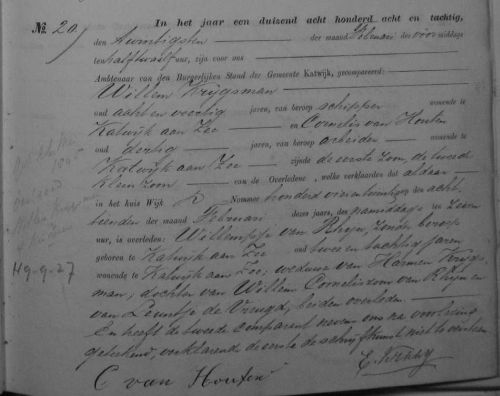 No. 20. In het jaar een duizend acht honderd acht en tachtig,
den twintigsten der maand Februari des voormiddags
ten half twaalf ure, zijn voor ons
Ambtenaar van den Burgerlijken Stand der Gemeente Katwijk, gecompareerd:
Willem Krijgsman
oud acht en veertig jaren, van beroep schipper wonende te
Katwijk aan Zee en Cornelis van Houten
oud dertig jaren, van beroep arbeider wonende te
Katwijk aan Zee zijnde de eerste zoon, de tweede
kleinzoon van de Overledene, welke verklaarden dat aldaar
in het huis Wijk Nommer honderd vier en twintig den acht
tienden der maand Februari dezes jaars, des namiddags te zeven
ure, is overleden: Willempje van Rhijn, zonder beroep
geboren te Katwijk aan Zee oud twee en tachtig jaren
wonende te Katwijk aan Zee, weduwe van Harmen Krijgs
man, dochter van Willem Corneliszoon van Rhijn en
van Leuntje de Vreugd, beiden overleden
En heeft de tweede comparant nevens ons na voorlezing
geteekend, verklarende de eerste de schrijfkunst niet te verstaan
C van Houten
H9-9-27